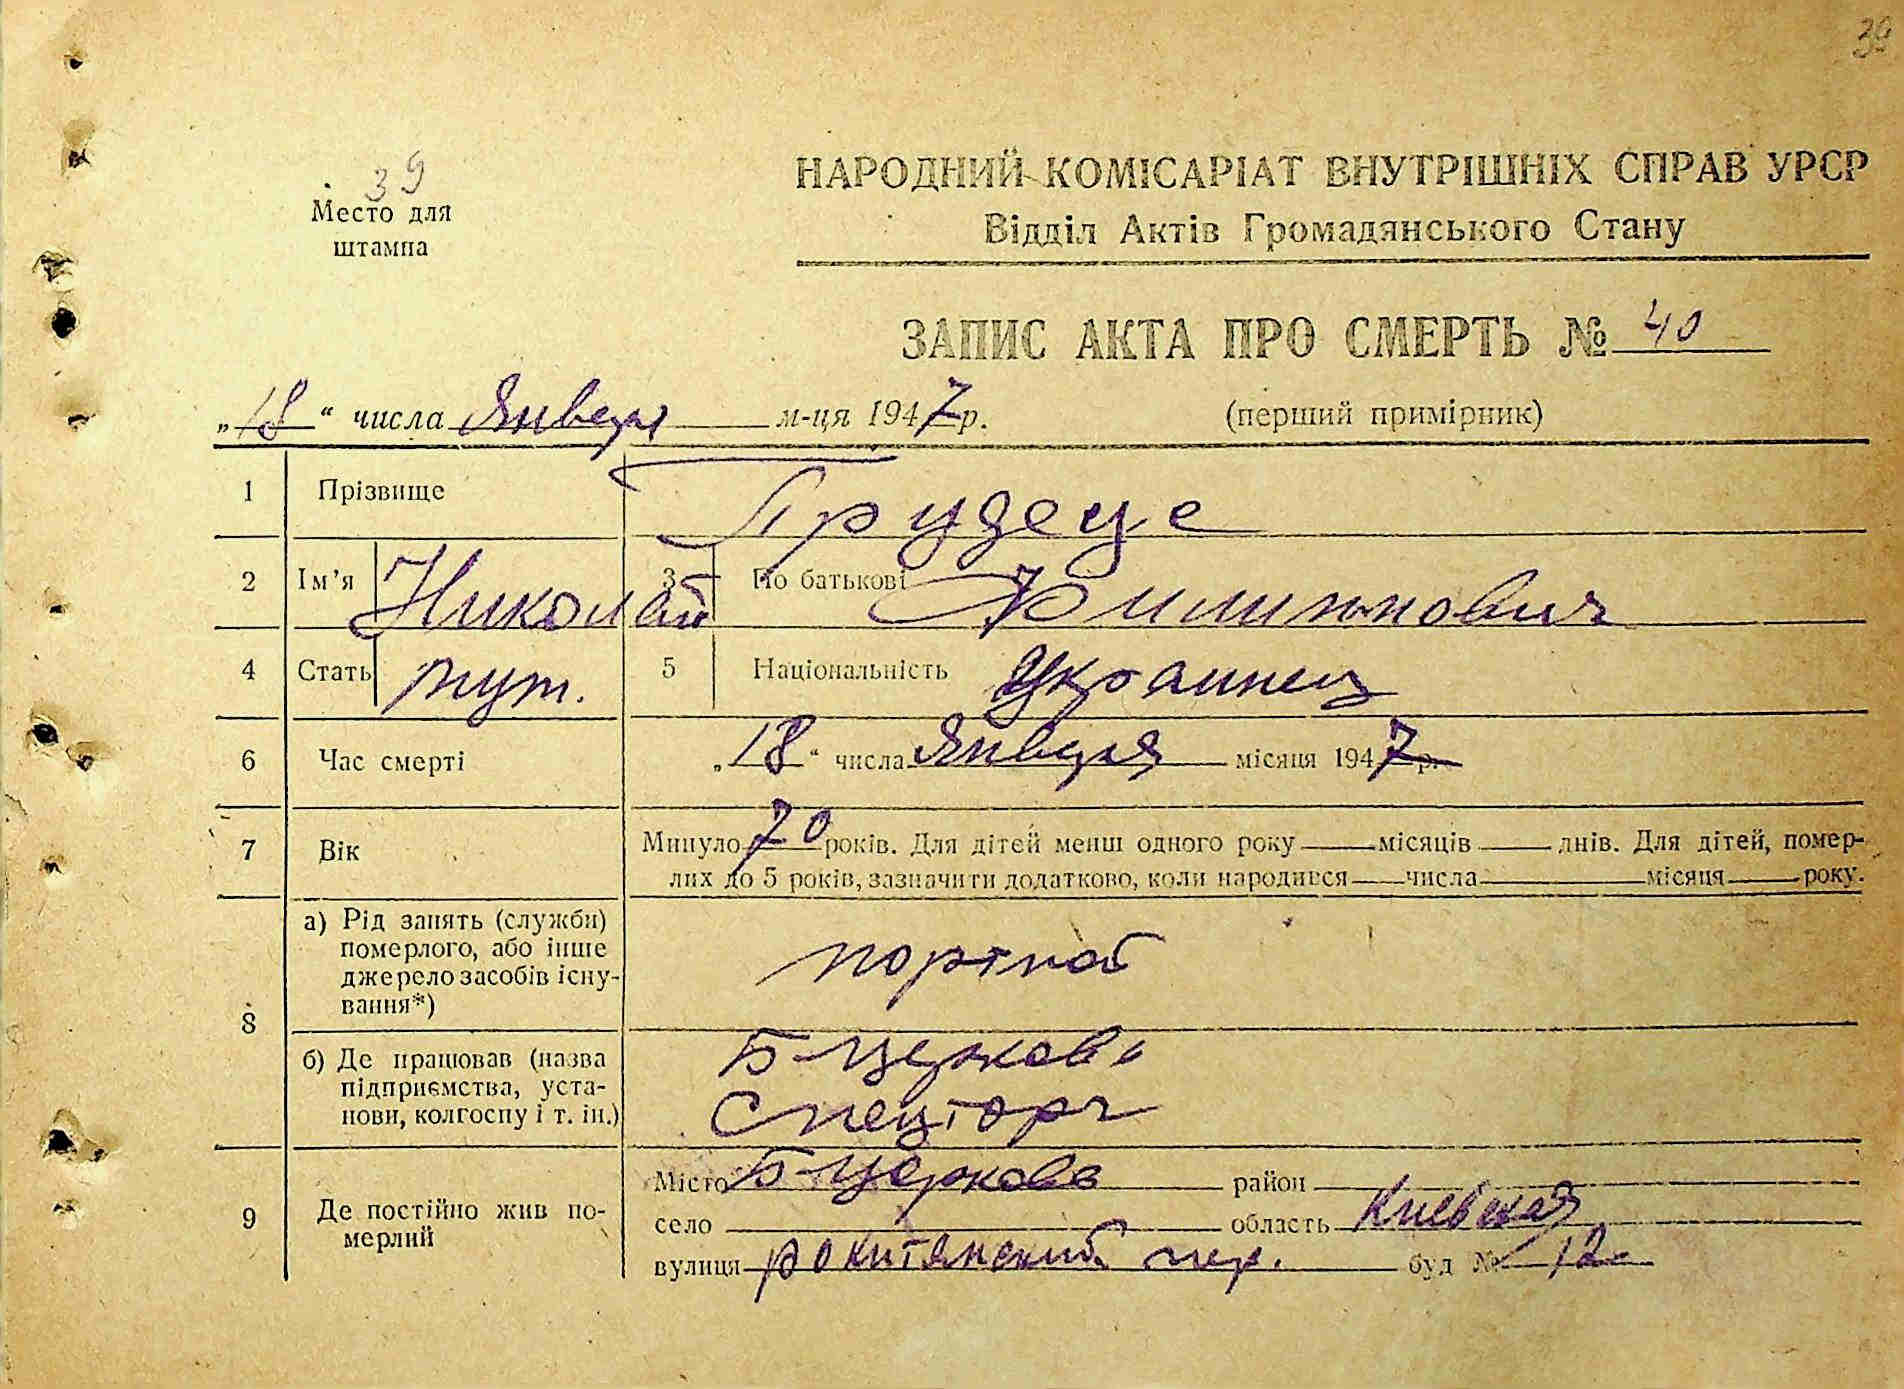 39
39
Место для
штампа
НАРОДНИЙ КОМІСАРІАТ ВНУТРІШНІХ СПРАВ УРСР
Відділ Актів Громадянського Стану
ЗАПИС АКТА ПРО СМЕРТЬ № 40
„18“ числа Января м-ця 1947 р. (перший примірник)
1 Прізвище
2 Ім'я Николай 3 По батькові Филиппович
4 Стать муж. 5 Національність Украинец
6 Час смерті „18“ числа Января місяця 1947 р.
7 Вік Минуло 70 років. Для дітей менш одного року місяців днів. Для дітей, помер-
лих до 5 років, зазначити додатково, коли народився числа місяця року.
8 а) Рід занять (служби)
померлого, або інше
джерело засобів існу-
вання*)
портной
б) Де працював (назва
підприємства, уста-
нови, колгоспу і т. ін.)
Б-Церковь
Спецторг
9 Де постійно жив по-
мерлий
Місто Б-Церковь район
село область Киевская
вулиця рокитянский пер. буд № 12